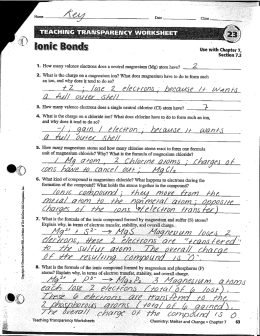 Name Key Date Class
TEACHING TRANSPARENCY WORKSHEET
23
Ionic Bonds
Use with Chapter 7,
Section 7.2
1. How many valence electrons does a neutral magnesium (Mg) atom have? 2
2. What is the charge on a magnesium ion? What does magnesium have to do to form such
an ion, and why does it tend to do so?
+2 ; lose 2 electrons, because it wants
a full outer shell
3. How many valence electrons does a single neutral chlorine (Cl) atom have? 7
4. What is the charge on a chloride ion? What does chlorine have to do to form such an ion,
and why does it tend to do so?
-1 ; gain 1 electron, because it wants
a full outer shell.
5. How many magnesium atoms and how many chlorine atoms react to form one formula
unit of magnesium chloride? Why? What is the formula of magnesium chloride?
1 Mg atom, 2 Chlorine atoms ; charges of
ions have to cancel out ; MgCl₂
6. What kind of compound is magnesium chloride? What happens to electrons during the
formation of the compound? What holds the atoms together in the compound?
Ionic compound ; they move from the
metal atom to the nonmetal atom ; opposite
charges of the ions (electron transfer)
7. What is the formula of the ionic compound formed by magnesium and sulfur (S) atoms?
Explain why, in terms of electron transfer, stability, and overall charge.
Mg²⁺ S²⁻ → MgS Magnesium loses 2
electrons, these 2 electrons are "transferred"
to the sulfur atom. The overall charge
of the resulting compound is 0.
8. What is the formula of the ionic compound formed by magnesium and phosphorus (P)
atoms? Explain why, in terms of electron transfer, stability, and overall charge.
Mg²⁺ P³⁻ → Mg₃P₂ 3 Magnesium atoms
each lose 2 electrons (total of 6 lost)
These 6 electrons are transferred to the
2 phosphorous atoms (total of 6 gained).
The overall charge of the compound is 0.
Teaching Transparency Worksheets
Chemistry: Matter and Change • Chapter 7